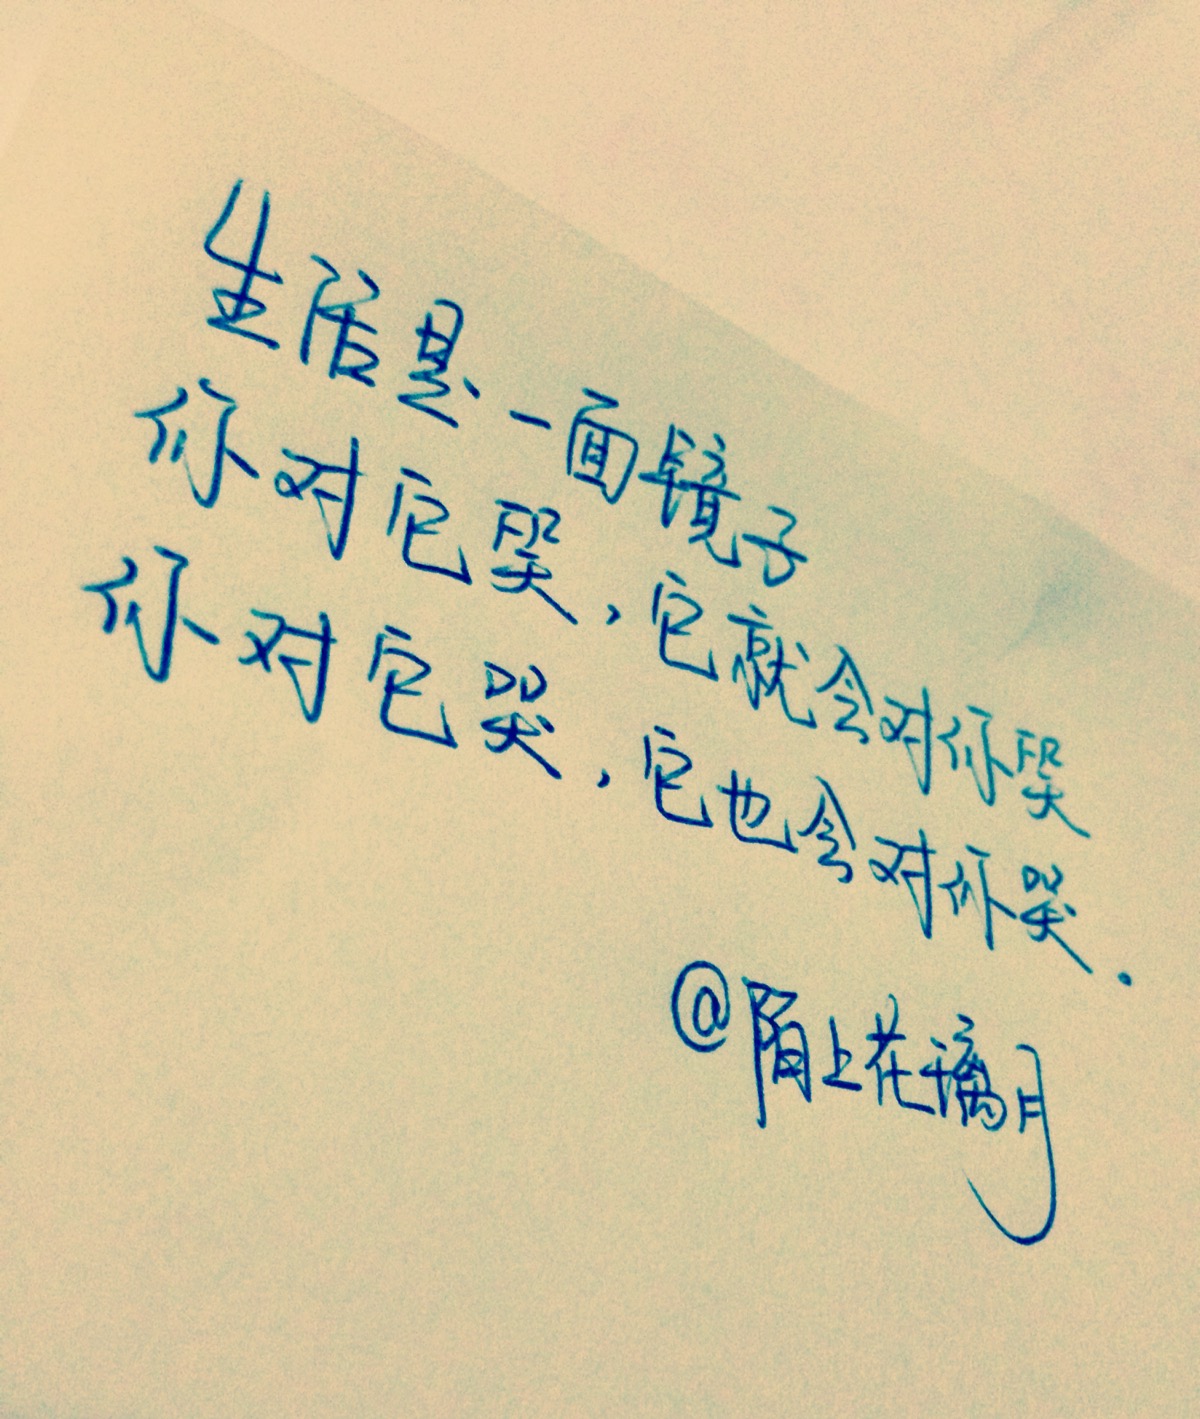 生活是一面镜子
你对它哭，它就会对你哭
你对它哭，它也会对你哭．
@陌上花漓月